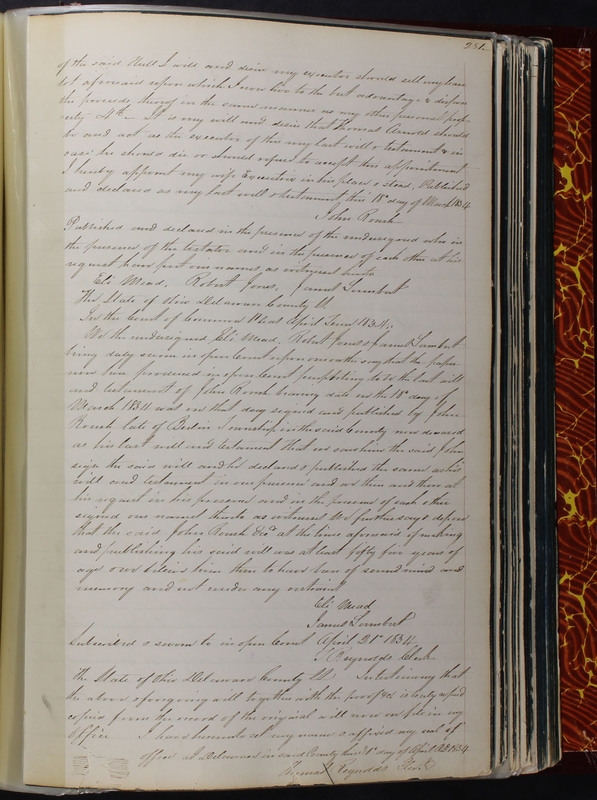 251.
of the said Hull I will and desire my executor should sell my lease
lot aforesaid upon which I now live to the best advantage & dispose
the proceeds thereof in the same manner as my other personal prop-
erty 4th It is my will and desire that Thomas Arnold should
be and act as the executor of this my last will & testament & in
case he should die or should refuse to accept this appointment
I hereby appoint my wife Executrix in his place & stead. Published
and declared as my last will & testament this 18th day of March 1834
John Roush
Published and declared in the presence of the undersigned who in
the presence of the testator and in the presence of each other at his
request have put our names as witnesses hereto
Eli Mead, Robert Jones, James Lambert
The State of Ohio Delaware County SS.
In the Court of Common Pleas April Term 1834.
We the undersigned Eli Mead, Robert Jones & James Lambert
being duly sworn in open Court upon our oaths say that the paper
now here produced in open Court purporting to be the last will
and testament of John Roush bearing date on the 18th day of
March 1834 was on that day signed and published by John
Roush late of Berlin Township in the said County now deceased
as his last will and testament that we saw him the said John
sign the said will and he declared & published the same as his
will and testament in our presence and we then and there at
his request in his presence and in the presence of each other
signed our names thereto as witnesses We further say & depose
that the said John Roush decd at the time aforesaid of making
and publishing his said will was at least fifty five years of
age & we believe him then to have been of sound mind and
memory and not under any restraint
Eli Mead
James Lambert
Subscribed & sworn to in open Court April 21st 1834
T Reynolds Clerk
The State of Ohio Delaware County SS. In testimony that
the above & foregoing will together with the proof &c is truly
copied from the record of the original will now on file in my
Office I have hereunto set my name & affixed my seal of
office at Delaware in said County this day of April AD 1834
Thomas Reynolds Clerk